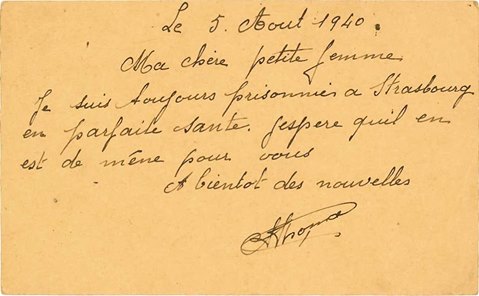 Le 5. Aout 1940.
Ma chère petite femme
Je suis toujours prisonnier a Strasbourg
en parfaite sante. Jespere quil en
est de mêne pour vous
A bientot des nouvelles